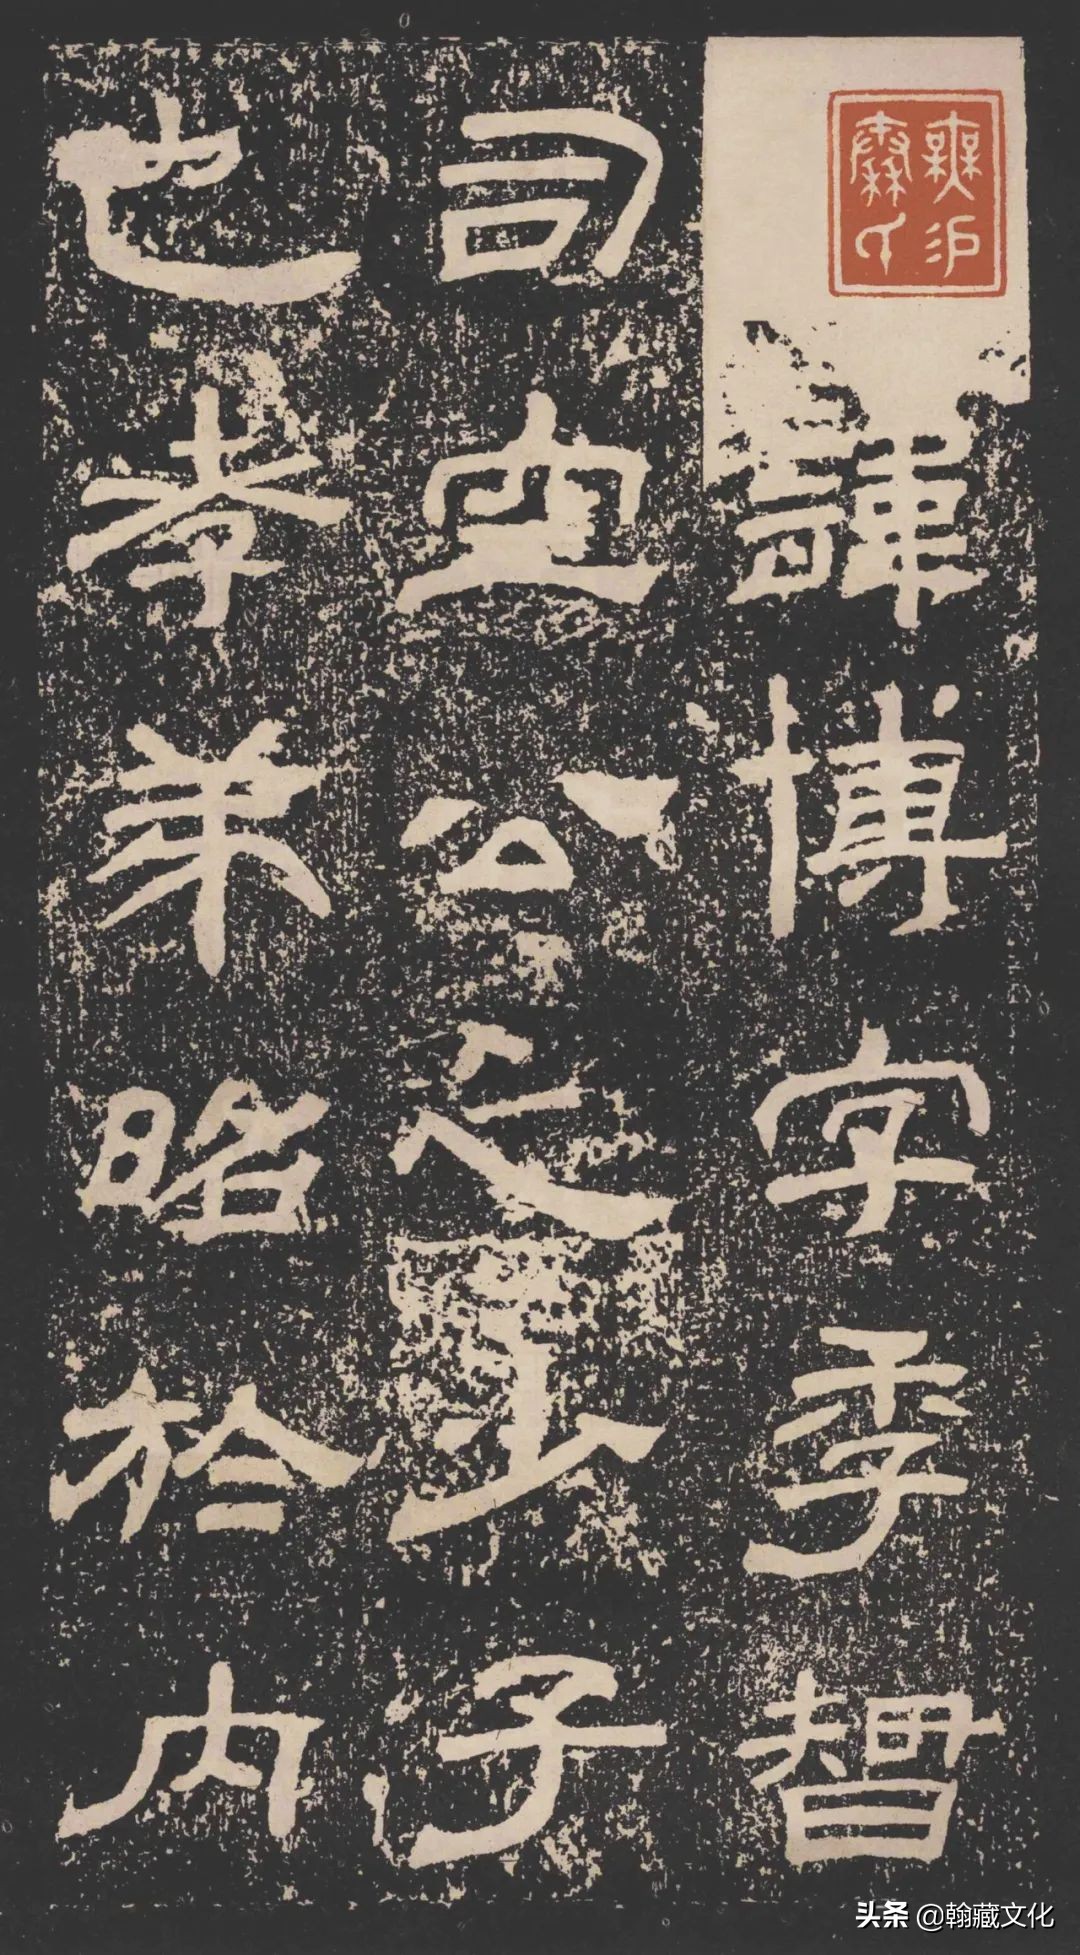 諱博字季智
司空公之少子
也孝弟昭於內
头条 @翰藏文化